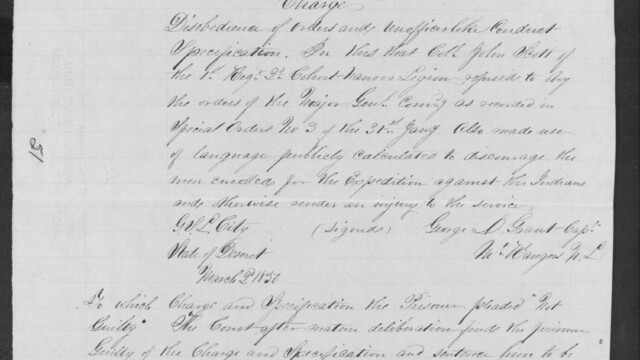 Charge
Disobedience of orders and Unofficerlike Conduct
Specification. In this that Col. John Scott of
the 1st Regt. 2d Cohort Nauvoo Legion refused to obey
the orders of the Major Genl. Comdg as recorded in
Special Orders No 3 of the 31st Jany. Also made use
of language publicly calculated to discourage the
men enrolled for the Expedition against the Indians
and otherwise render an injury to the service,
G. S. L. City (Signed) George D. Grant Capt.
State of Deseret
N. L.
March 2d 1850
To which Charge and Specification the Prisoner pleaded "Not
Guilty" The Court after mature deliberation finds the prisoner
Guilty of the Charge and Specification and sentence him to be